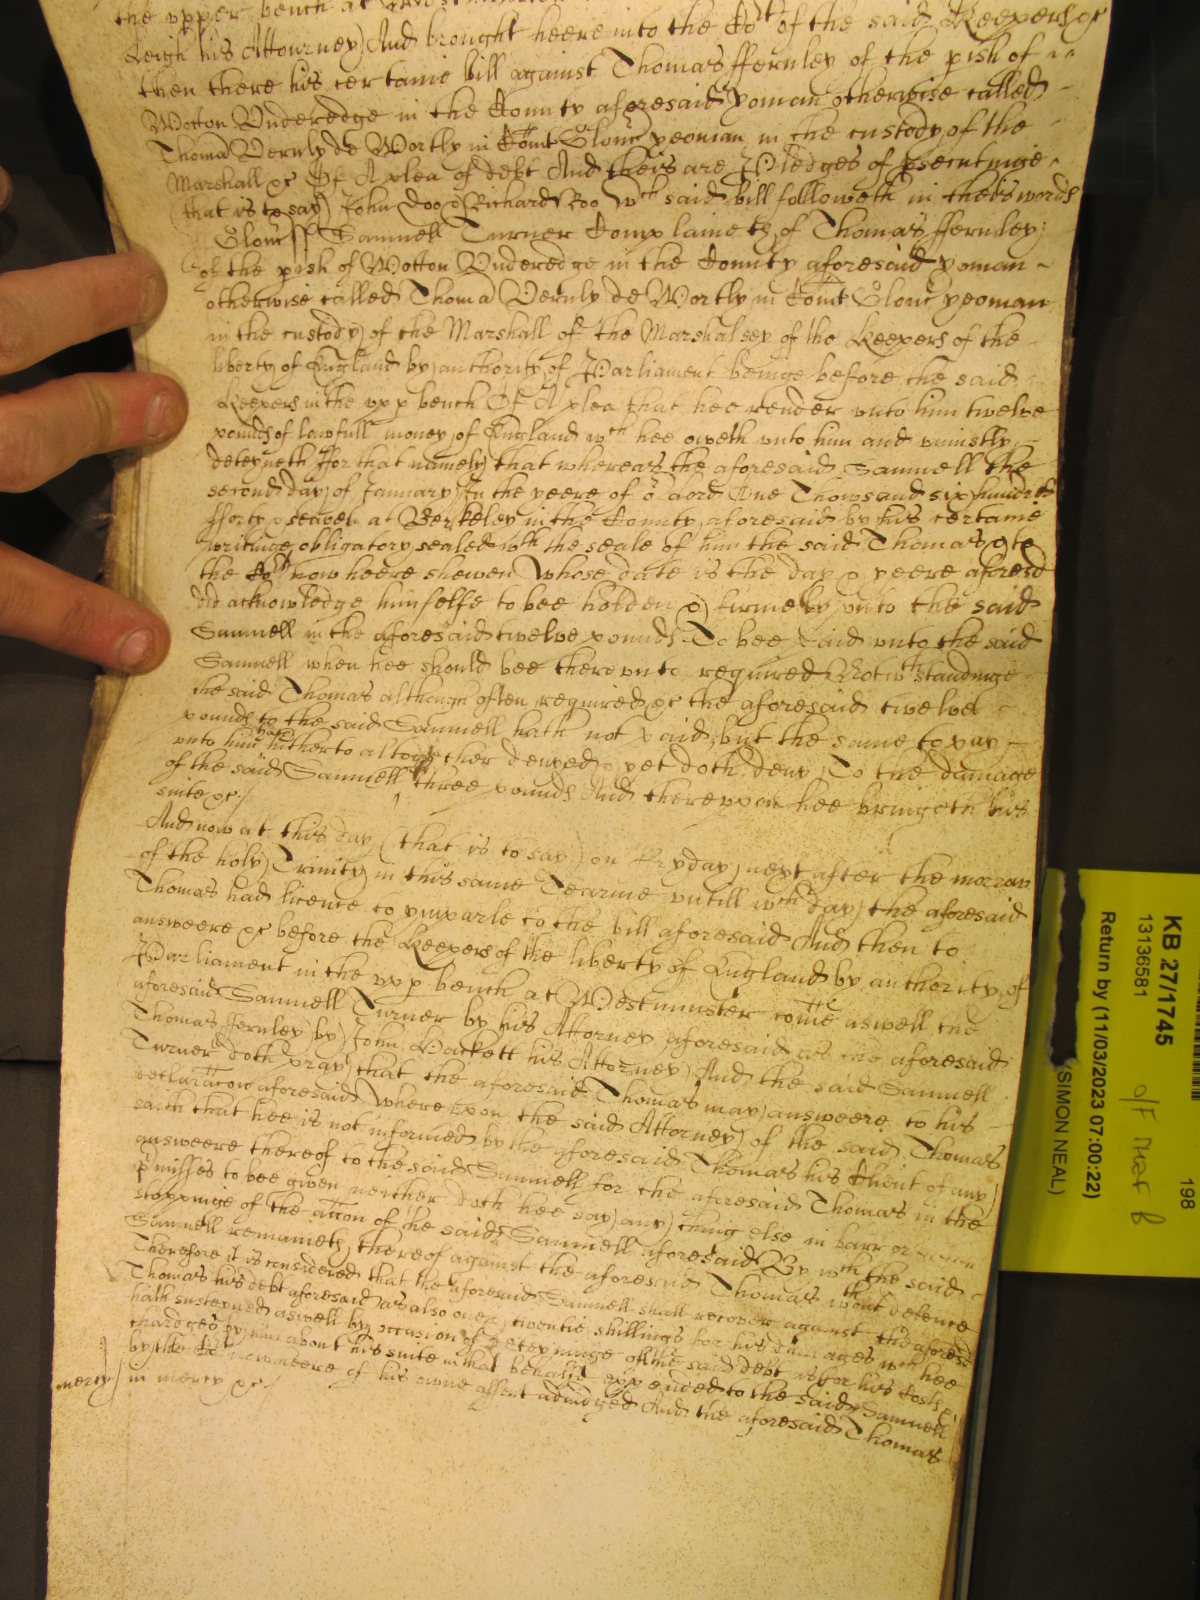 the upper bench at Westminster
Leigh his Attourney) And brought heere into the Cort of the said Keepers &c
then there his certaine bill against Thomas ffernley of the pish of
Wotton Underedge in the County aforesaid yoman otherwise called
Thoma Vernly de Wortly in Comt Glouc yeoman in the custody of the
Marshall &c Of A plea of debt And theis are Pledges of psecutinge
(that is to say) John Doo & Richard Roo Wch said bill followeth in theis words
Glouc ss Samuell Turner Complaineth of Thomas ffernley
of the pish of Wotton Underedge in the County aforesaid yoman
otherwise called Thoma Vernly de Wortly in Comt Glouc yeoman
in the custody of the Marshall of the Marshalsey of the Keepers of the
liberty of England by authority of Parliament beinge before the said
Keepers in the upp bench Of A plea that hee render unto him twelve
pounds of lawfull money of England wch hee oweth unto him and uniustly
deteyneth ffor that namely) that whereas the aforesaid Samuell the
second day of January In the yeere of or Lord One Thowsand six hundred
fforty & seaven at Berkeley in the County aforesaid by his certaine
writinge obligatory sealed wth the seale of him the said Thomas & to
the Cort now heere shewen Whose date is the day & yeere aforesd
did acknowledge himselfe to bee holden & firmely unto the said
Samuell in the aforesaid twelve pounds To bee paid unto the said
Samuell when hee should bee there unto required Notwthstandinge
the said Thomas although often required &c the aforesaid twelve
pounds to the said Samuell hath not paid, but the same to pay
unto him hath hitherto altogether denyed & yet doth deny To the damage
of the said Samuell three pounds And thereupon hee bringeth his
suite &c
And now at this day (that is to say) on ffryday next after the morrow
of the holy Trinity in this same Tearme untill wch day the aforesaid
Thomas had licence to ymparle to the bill aforesaid And then to
answeere &c before the Keepers of the liberty of England by authority of
Parliament in the upp bench at Westminster come aswell the
aforesaid Samuell Turner by his Attorney aforesaid as the aforesaid
Thomas ffernley by John Packett his Attorney) And the said Samuell
Turner doth pray that the aforesaid Thomas may answeere to his
declaracon aforesaid Whereupon the said Attorney of the said Thomas
saith that hee is not informed by the aforesaid Thomas his Client of any
answeere thereof to the said Samuell for the aforesaid Thomas in the
pmisses to bee given neither doth hee say any thing else in barr or
stoppinge of the accon of the said Samuell aforesaid By wch the said
Samuell remaineth thereof against the aforesaid Thomas wthout defence
Therefore it is considered that the aforesaid Samuell shall recover against the aforesd
Thomas his debt aforesaid As also one & twentie shillings for his damages wch hee
hath susteyned aswell by occasion of deteyninge of the said debt as for his Costs &
chardges by him about his suite in that behalfe expended to the said Samuell
by the Cort now heere of his owne assent adiudged And the aforesaid Thomas
mercy in mercy &c
KB 27/1745
13136581
Return by (11/03/2023 07:00:22)
(SIMON NEAL)
198